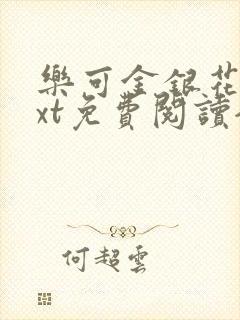 樂可金銀花
xt免費閱讀
何超雲